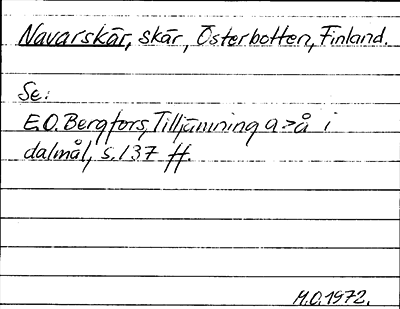 Navarskär, skär, Österbotten, Finland.
Se:
E.O. Bergfors, Tilljämning a>å i
dalmål, s. 137 ff.
M.O. 1972.